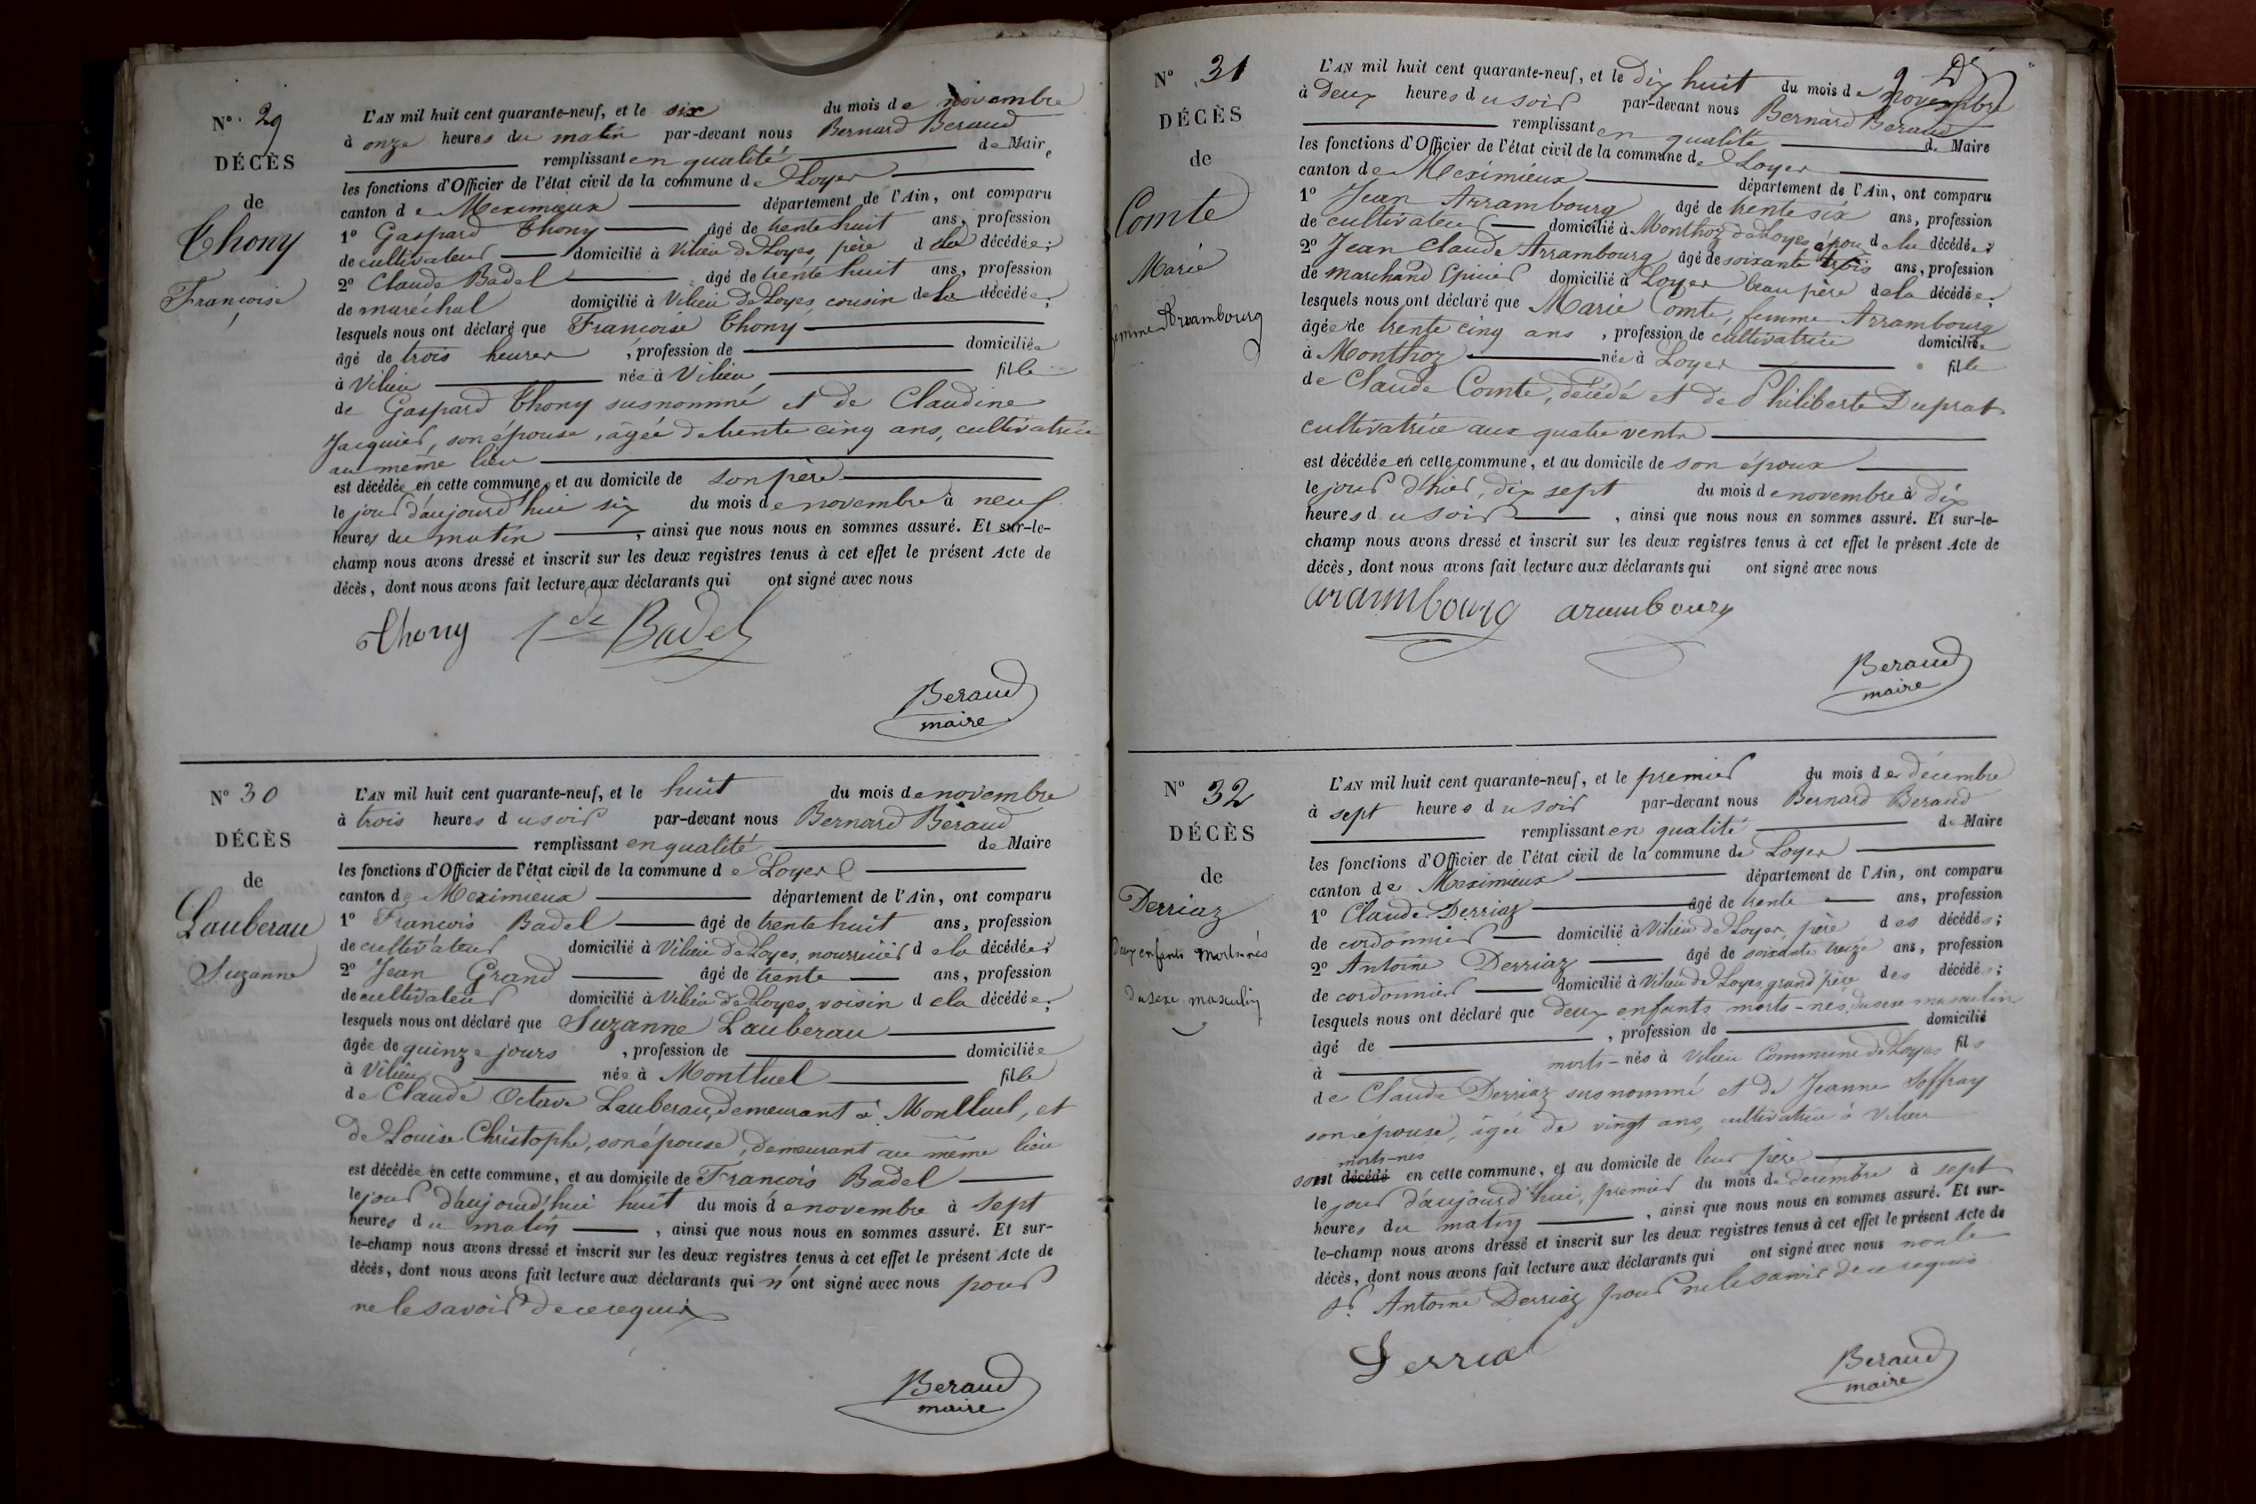 Nº 29
DÉCÈS
de
Thony
Françoise
L'AN mil huit cent quarante-neuf, et le six du mois de novembre
à onze heures du matin par-devant nous Bernard Beraud
remplissant en qualité de Maire
les fonctions d'Officier de l'état civil de la commune de Loyes
canton de Meximieux département de l'Ain, ont comparu
1º Gaspard Thony âgé de trente huit ans, profession
de cultivateur domicilié à Vilieu de Loyes, père de la décédée;
2º Claude Badel âgé de trente huit ans, profession
de maréchal domicilié à Vilieu de Loyes, cousin de la décédée;
lesquels nous ont déclaré que Françoise Thony
âgé de trois heures , profession de domiciliée
à Vilieu née à Vilieu fille
de Gaspard Thony susnommé et de Claudine
Jacquier, son épouse, âgée de trente cinq ans, cultivatrice
au même lieu
est décédée en cette commune, et au domicile de son père
le jour d'aujourd'hui six du mois de novembre à neuf
heures du matin , ainsi que nous nous en sommes assuré. Et sur-le-
champ nous avons dressé et inscrit sur les deux registres tenus à cet effet le présent Acte de
décès, dont nous avons fait lecture aux déclarants qui ont signé avec nous
Thony Badel
Beraud
maire
Nº 30
DÉCÈS
de
Lauberau
Suzanne
L'AN mil huit cent quarante-neuf, et le huit du mois de novembre
à trois heures du soir par-devant nous Bernard Beraud
remplissant en qualité de Maire
les fonctions d'Officier de l'état civil de la commune de Loyes
canton de Meximieux département de l'Ain, ont comparu
1º François Badel âgé de trente huit ans, profession
de cultivateur domicilié à Vilieu de Loyes, nourricier de la décédée;
2º Jean Grand âgé de trente ans, profession
de cultivateur domicilié à Vilieu de Loyes, voisin de la décédée;
lesquels nous ont déclaré que Suzanne Lauberau
âgée de quinze jours , profession de domiciliée
à Vilieu née à Montluel fille
de Claude Octave Lauberau, demeurant à Montluel, et
de Louise Christophe, son épouse, demeurant au même lieu
est décédée en cette commune, et au domicile de François Badel
le jour d'aujourd'hui huit du mois de novembre à sept
heures du matin , ainsi que nous nous en sommes assuré. Et sur-
le-champ nous avons dressé et inscrit sur les deux registres tenus à cet effet le présent Acte de
décès, dont nous avons fait lecture aux déclarants qui n'ont signé avec nous pour
ne le savoir de ce requis
Beraud
maire
Nº 31
DÉCÈS
de
Comte
Marie
femme Arrambourg
L'AN mil huit cent quarante-neuf, et le dix huit du mois de novembre
à deux heures du soir par-devant nous Bernard Beraud
remplissant en qualité de Maire
les fonctions d'Officier de l'état civil de la commune de Loyes
canton de Meximieux département de l'Ain, ont comparu
1º Jean Arrambourg âgé de trente six ans, profession
de cultivateur domicilié à Monthoz de Loyes, époux de la décédée;
2º Jean Claude Arrambourg âgé de soixante trois ans, profession
de marchand Epicier domicilié à Loyes beau père de la décédée;
lesquels nous ont déclaré que Marie Comte, femme Arrambourg
âgée de trente cinq ans , profession de cultivatrice domiciliée
à Monthoz née à Loyes fille
de Claude Comte, décédé et de Philiberte Duprat
cultivatrice aux quatre vents
est décédée en cette commune, et au domicile de son époux
le jour d'hier, dix sept du mois de novembre à dix
heures du soir , ainsi que nous nous en sommes assuré. Et sur-le-
champ nous avons dressé et inscrit sur les deux registres tenus à cet effet le présent Acte de
décès, dont nous avons fait lecture aux déclarants qui ont signé avec nous
arambourg arambourg
Beraud
maire
Nº 32
DÉCÈS
de
Derriaz
Deux enfants morts-nés
du sexe masculin
L'AN mil huit cent quarante-neuf, et le premier du mois de décembre
à sept heures du soir par-devant nous Bernard Beraud
remplissant en qualité de Maire
les fonctions d'Officier de l'état civil de la commune de Loyes
canton de Meximieux département de l'Ain, ont comparu
1º Claude Derriaz âgé de trente ans, profession
de cordonnier domicilié à Vilieu de Loyes, père des décédés;
2º Antoine Derriaz âgé de soixante treize ans, profession
de cordonnier domicilié à Vilieu de Loyes, grand père des décédés;
lesquels nous ont déclaré que deux enfants morts-nés, du sexe masculin
âgé de , profession de domicilié
à morts-nés à Vilieu Commune de Loyes fils
de Claude Derriaz susnommé et de Jeanne Joffray
son épouse, âgée de vingt ans, cultivatrice à Vilieu
morts-nés
sont décédé en cette commune, et au domicile de leur père
le jour d'aujourd'hui, premier du mois de décembre à sept
heures du matin , ainsi que nous nous en sommes assuré. Et sur-
le-champ nous avons dressé et inscrit sur les deux registres tenus à cet effet le présent Acte de
décès, dont nous avons fait lecture aux déclarants qui ont signé avec nous non le
Sr. Antoine Derriaz pour ne le savoir de ce requis
Derriaz
Beraud
maire